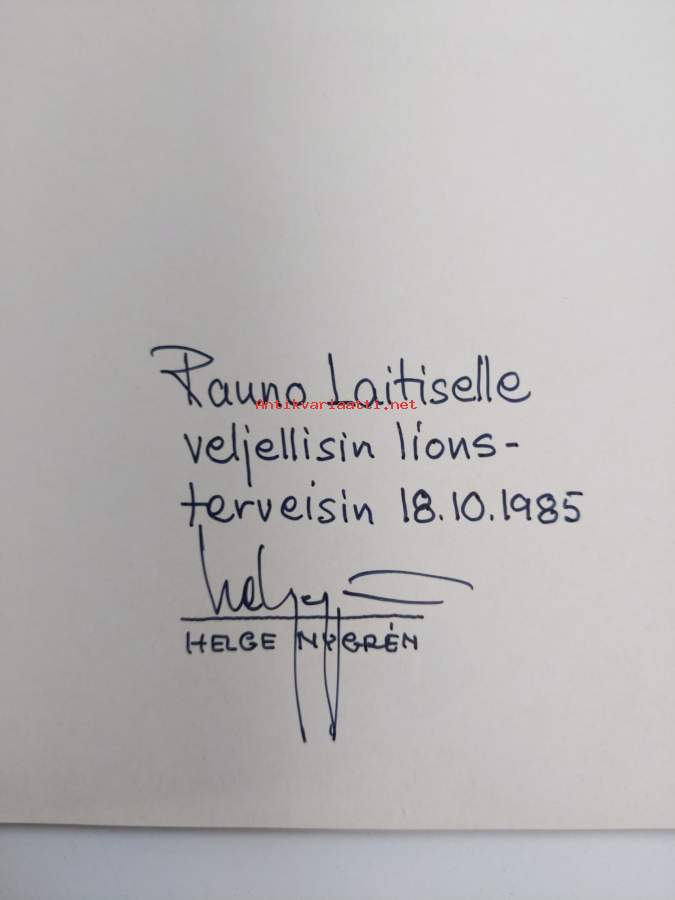 Rauno Laitiselle
Antikvariaatti.net
veljellisin lions-
terveisin 18.10.1985
HELGE NYGRÉN